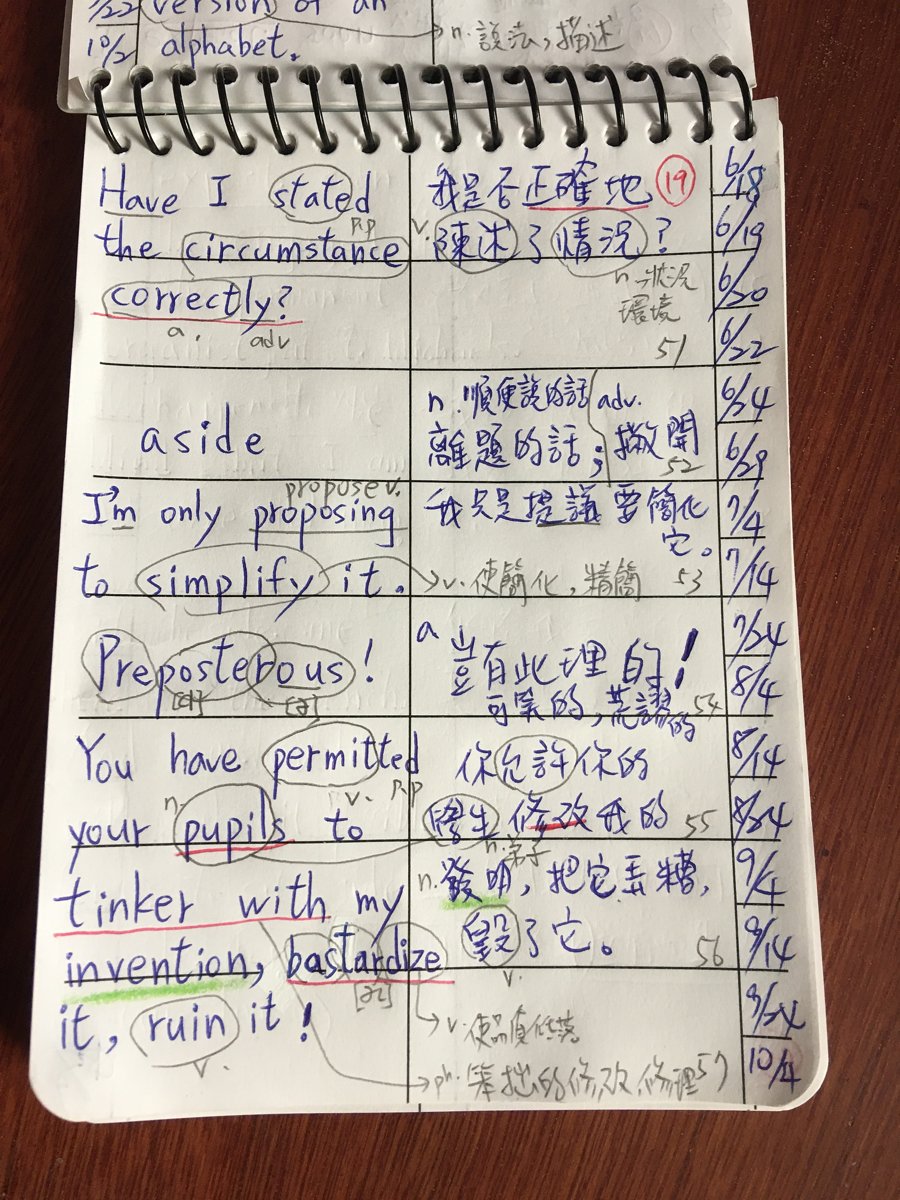 7/22 version of an
10/2 alphabet. n.說法,描述
Have I stated 我是否正確地 19 6/18
p.p v.
the circumstance 陳述了情況? 6/19
n.→狀況 6/20
correctly? 環境
a. adv 51 6/22
n.順便說的話 adv. 6/24
aside 離題的話; 撇開
52 6/29
propose v.
I'm only proposing 我只是提議要簡化 7/4
它。
to simplify it. v.使簡化,精簡 53 7/14
a 7/24
Preposterous! 豈有此理的!
可笑的,荒謬的 54 8/4
You have permitted 你允許你的 8/14
n. v. p.p
your pupils to 學生修改我的 55 8/24
n.弟子
n.發明,把它弄糟, 9/4
tinker with my
invention, bastardize 毀了它。 56 9/14
v.
it, ruin it! v.使品質低落 9/24
v.
ph.笨拙的修改,修理 57 10/4